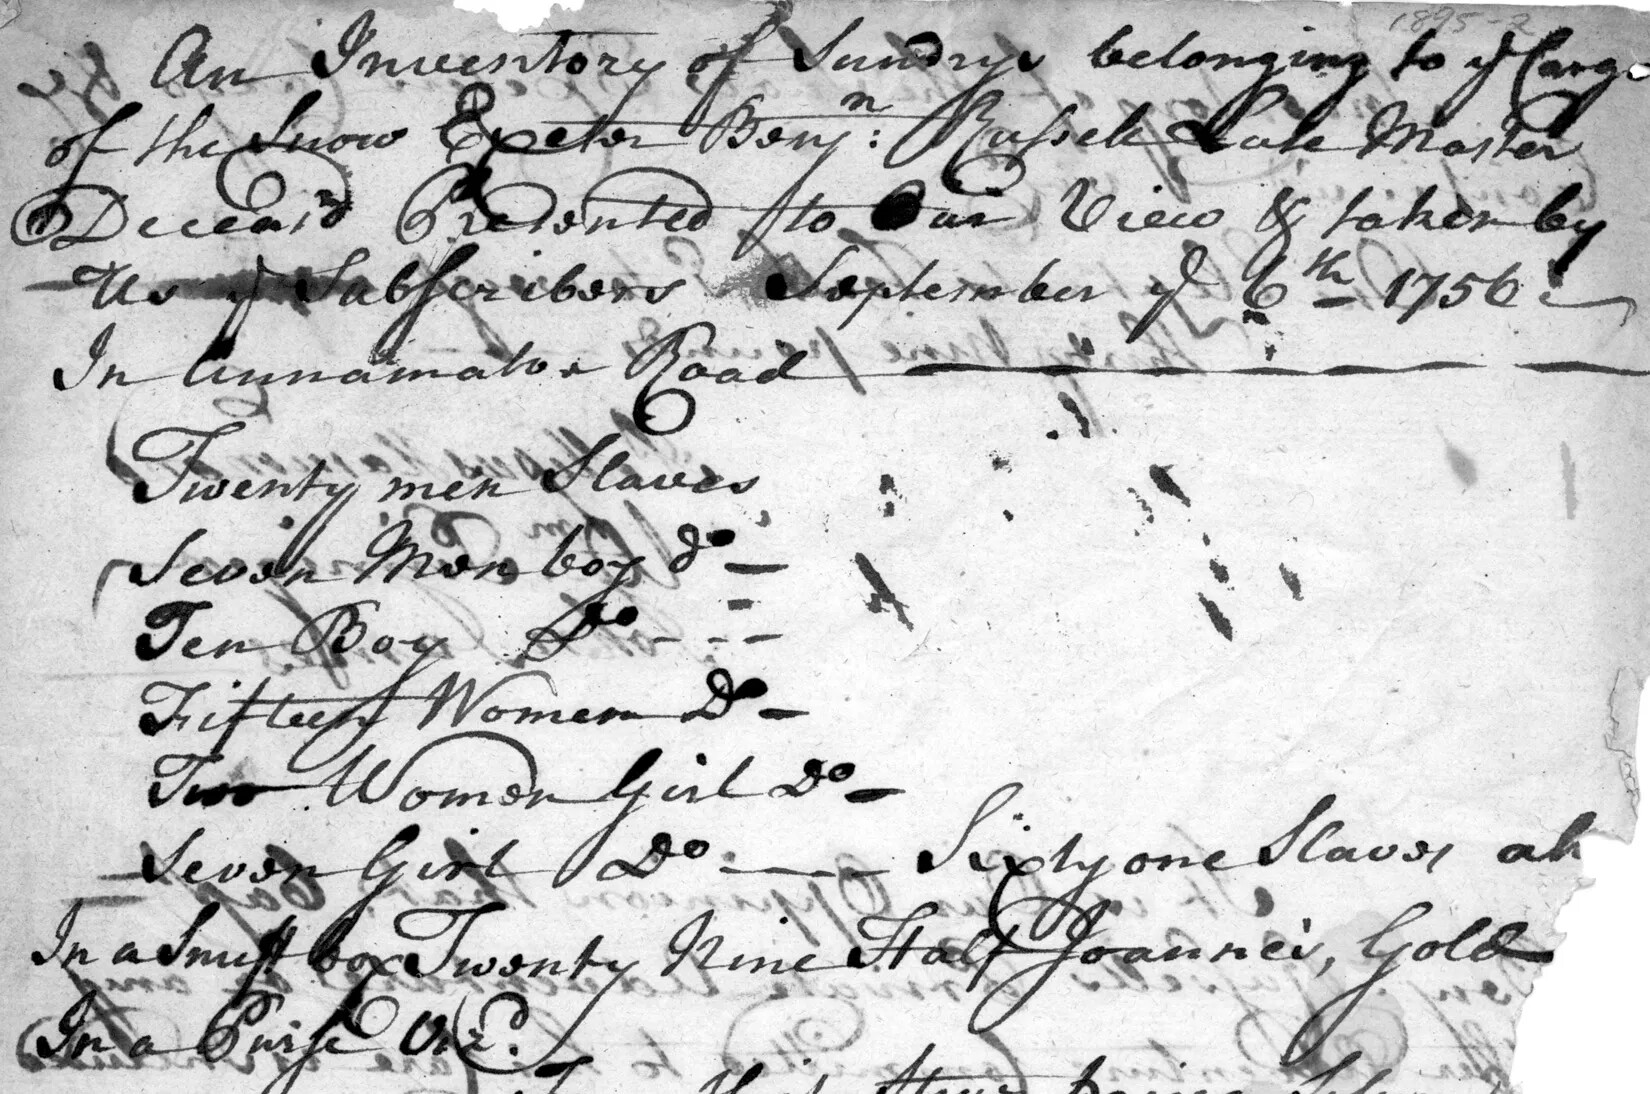 1895-2
An Inventory of Sundrys belonging to ye Cargo
of the Snow Exeter Benjn: Russell Late Master
Deceas'd Presented to Our View & taken by
Us ye Subscribers September ye 6th 1756:
In Annamaboe Road
Twenty men Slaves
Seven Men boy do
Ten Boy Do
Fifteen Women Do
Two Women Girl Do
Seven Girl Do Sixty one Slaves
In a Snuff box Twenty Nine Half Joannes, Gold
In a Purse Vizd.